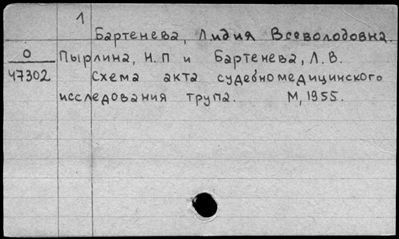 1
Бартенева, Лидия Всеволодовна.
О Пырлина, Н.П и Бартенева, Л.В.
47302 Схема акта судебномедицинского
исследования трупа. М, 1955.